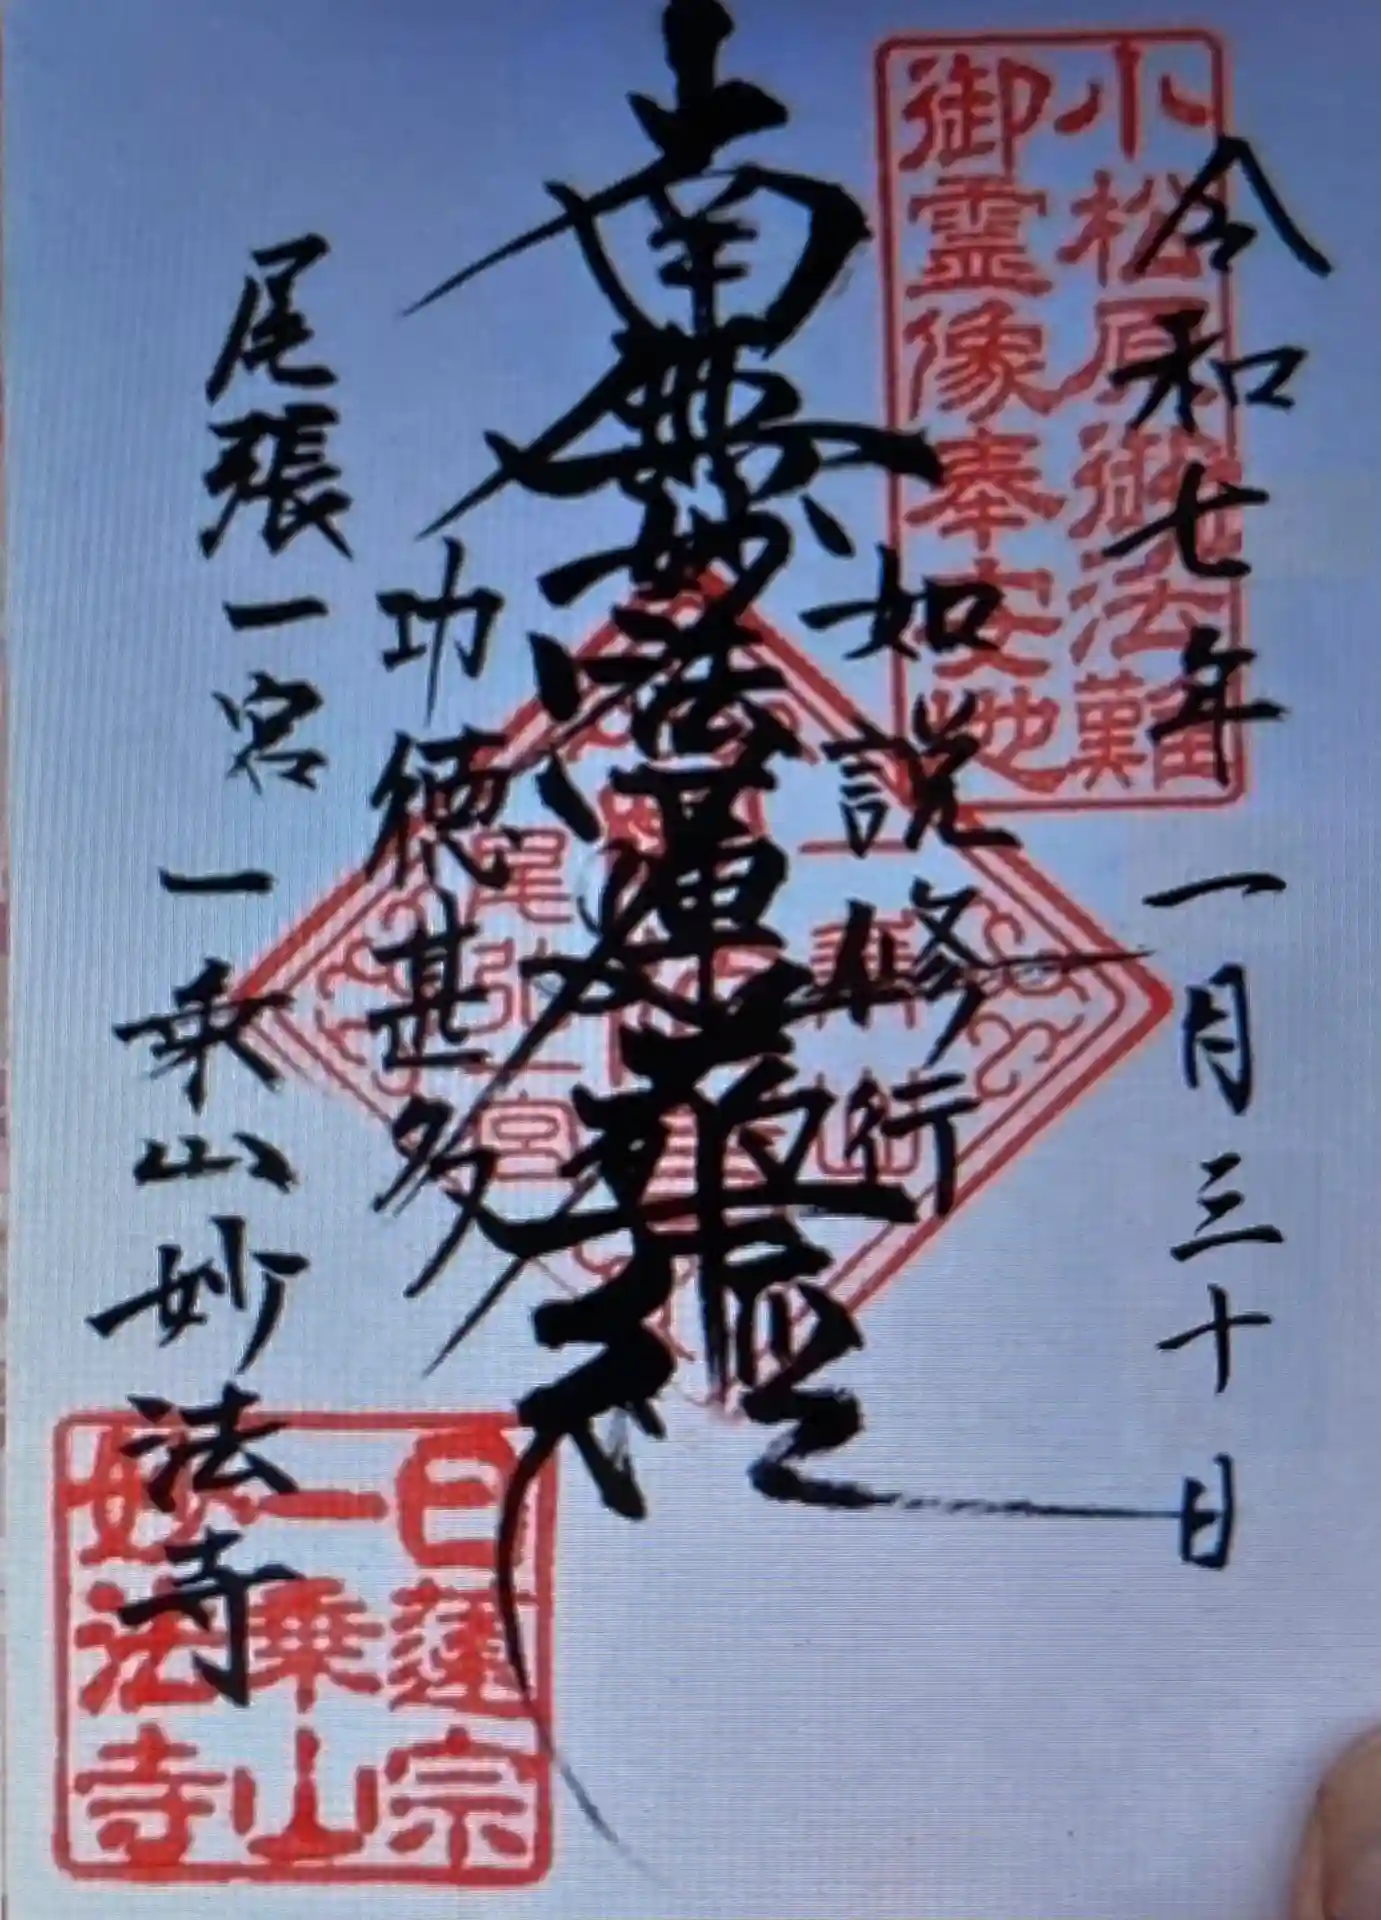 令和七年一月三十日
小松原御法難
御霊像奉安地
如説修行
南無妙法蓮華経
功徳甚多
尾張一宮
一乗山妙法寺
日蓮宗
一乗山
妙法寺